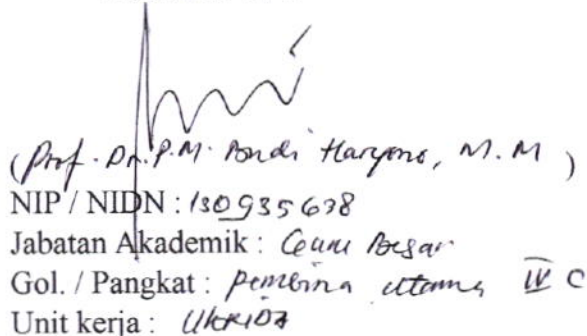 (Prof. Dr. P.M. Budi Haryono, M.M )
NIP / NIDN : 130935638
Jabatan Akademik : Guru Besar
Gol. / Pangkat : Pembina Utama IV C
Unit kerja : UKRIDA